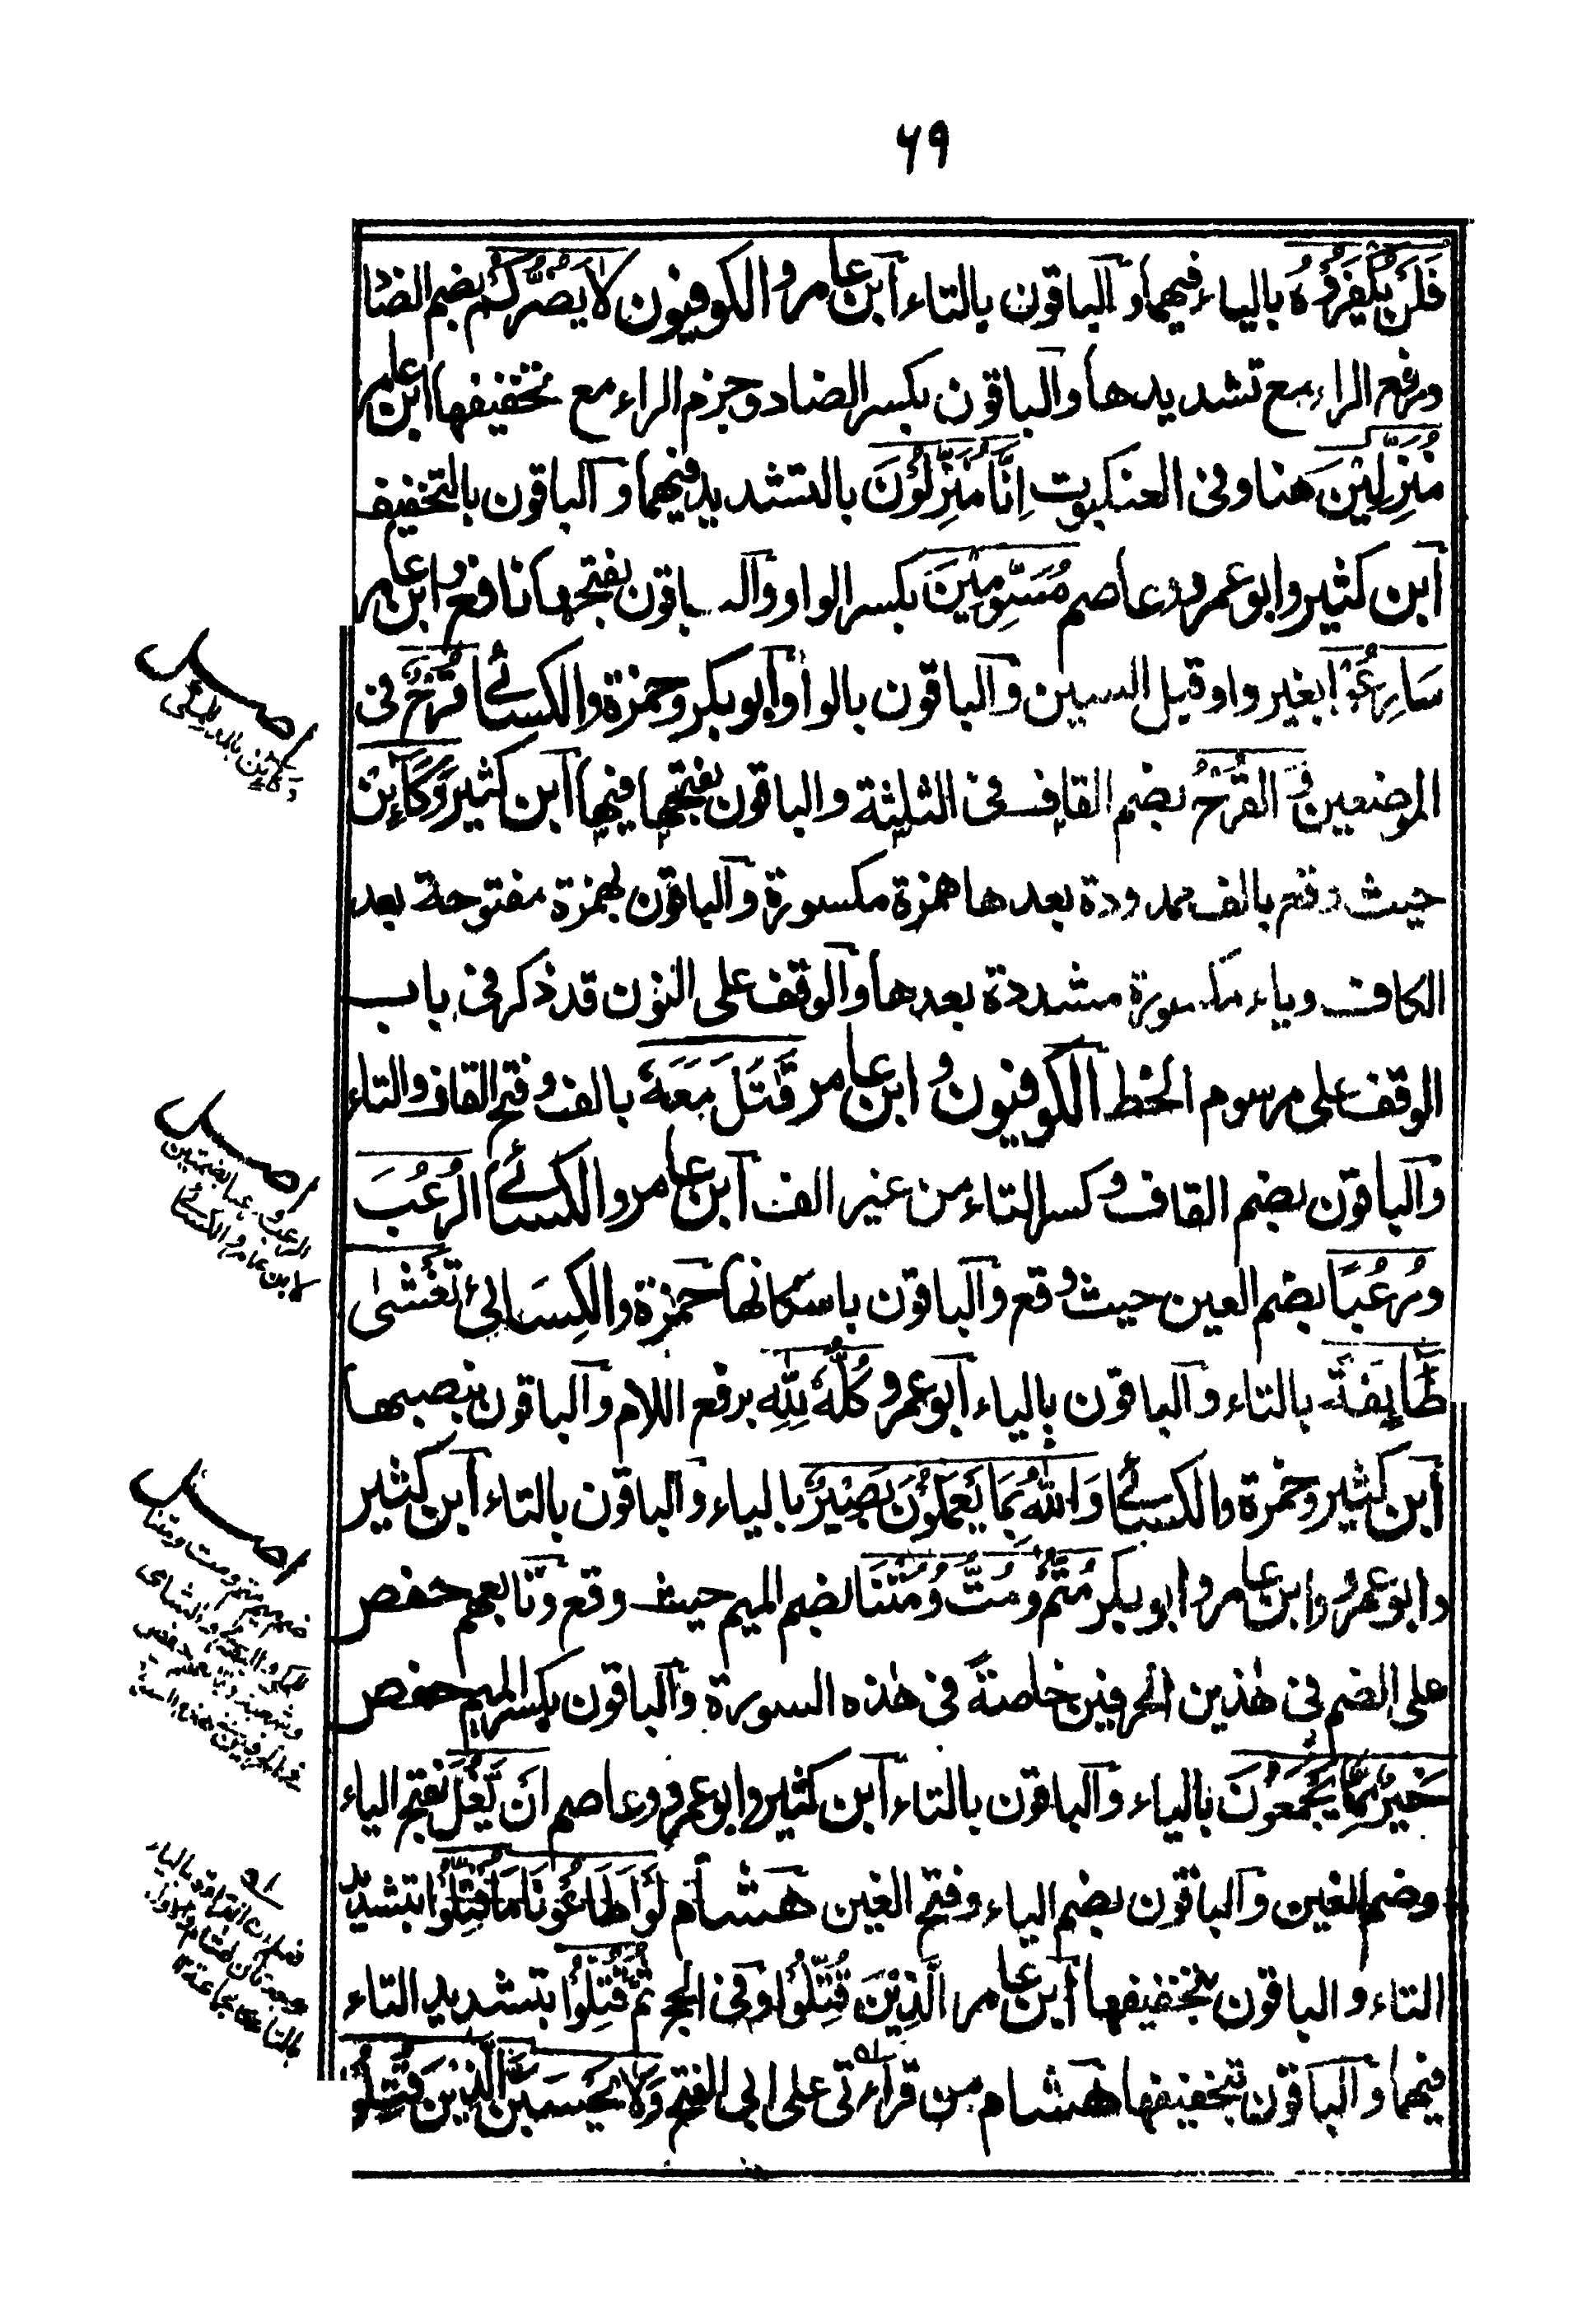 ۶۹
فَلَنْ يُكْفَرُوْهُ بالياء فيهما والباقون بالتاء ابن عامر والكوفيون لَا يَضُرُّكُمْ بضم الضاد
ورفع الراء مع تشديدها والباقون بكسر الضاد وجزم الراء مع تخفيفها ابن عامر
مُنَزَّلِيْنَ هنا وفى العنكبوت اِنَّا مُنَزِّلُوْنَ بالتشديد فيهما والباقون بالتخفيف
ابن كثير وابو عمرو وعاصم مُسَوِّمِيْنَ بكسر الواو والباقون بفتحها نافع وابن عامر
سَارِعُوْا بغير واو قبل السين والباقون بالواو ابوبكر وحمزة والكسائى قُرْحٌ فى
الموضعين و القُرْحُ بضم القاف فى الثلثة والباقون بفتحها فيها ابن كثير وَكَآئِنْ
حيث وقع بالف ممدودة بعدها همزة مكسورة والباقون بهمزة مفتوحة بعد
الكاف وياء مكسورة مشددة بعدها والوقف على النون قد ذكر فى باب
الوقف على مرسوم الخط الكوفيون وابن عامر قٰتَلَ مَعَهٗ بالف وفتح القاف والتاء
والباقون بضم القاف وكسر التاء من غير الف ابن عامر والكسائى الرُعُبَ
ورُعُبًا بضم العين حيث وقع والباقون باسكانها حمزة والكِسَائى تَغْشٰى
طَّآئِفَةً بالتاء والباقون بالياء ابو عمرو كُلُّهٗ لِلّٰهِ برفع اللام والباقون بنصبها
ابن كثير وحمزة والكسائى وَاللهُ بِمَا يَعْمَلُوْنَ بَصِيْرٌ بالياء والباقون بالتاء ابن كثير
وابو عمرو وابن عامر وابو بكر مُتُّمْ ومُتُّ ومُتْنَا بضم الميم حيث وقع وتابعهم حفص
على الضم فى هٰذين الحرفين خاصةً فى هٰذه السورة والباقون بكسر الميم حفص
خَيْرٌ مِّمَّا يَجْمَعُوْنَ بالياء والباقون بالتاء ابن كثير وابو عمرو وعاصم اَنْ يَّغُلَّ بفتح الياء
وضم الغين والباقون بضم الياء وفتح الغين هشام لَوْ اَطَاعُوْنَا مَا قُتِّلُوْا بتشديد
التاء والباقون بتخفيفها ابن عامر الَّذِيْنَ قُتِّلُوْا وفى الحج ثُمَّ قُتِّلُوْا بتشديد التاء
فيهما والباقون بتخفيفها هشام من قراءتى على ابى الفتح وَلَا يَحْسَبَنَّ الَّذِيْنَ قُتِلُوْا